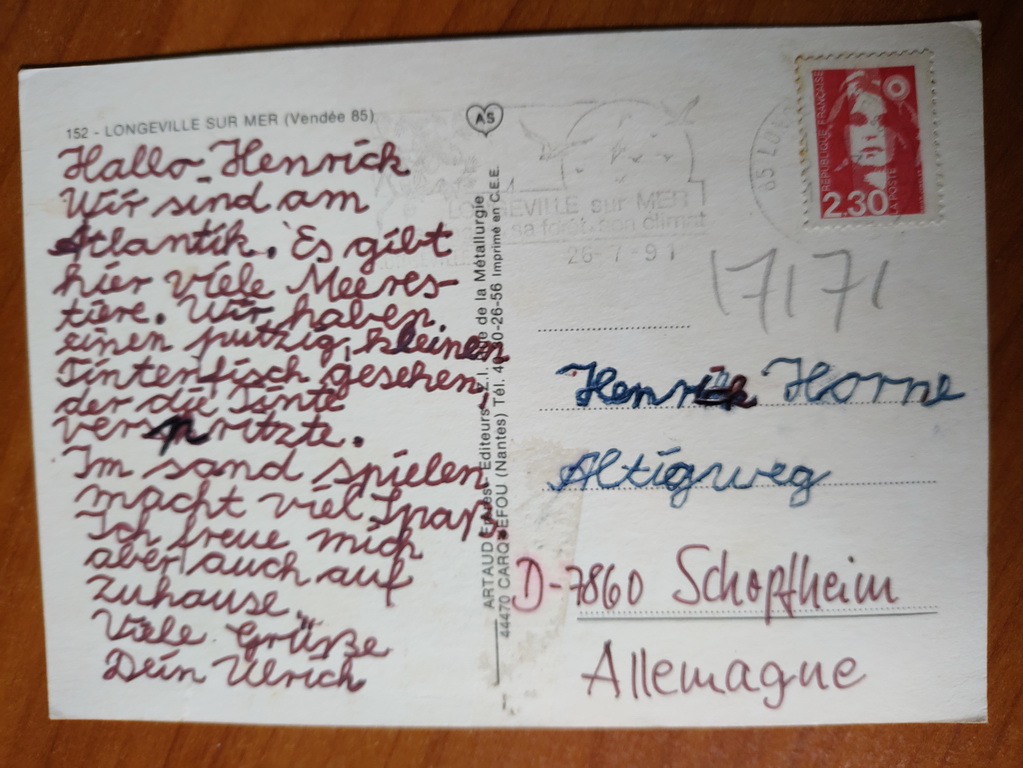 152 - LONGEVILLE SUR MER (Vendée 85)
AS
Hallo Henrick
Wir sind am
Atlantik. Es gibt
hier viele Meeres-
tiere. Wir haben
einen putzig, kleinen
Tintenfisch gesehen,
der die Tinte
verspritzte.
Im sand spielen
macht viel Spaß
Ich freue mich
aber auch auf
Zuhause.
Viele Grüße
Dein Ulrich
ARTAUD Editeurs - Z.I. de la Métallurgie
44470 CARQUEFOU (Nantes) Tél. 40-26-56 Imprimé en C.E.E.
LONGEVILLE sur MER
sa forêt, son climat
26-7-91
RÉPUBLIQUE FRANÇAISE
LA POSTE
2,30
17171
Henrick Horne
Altigweg
D-7860 Schopfheim
Allemagne